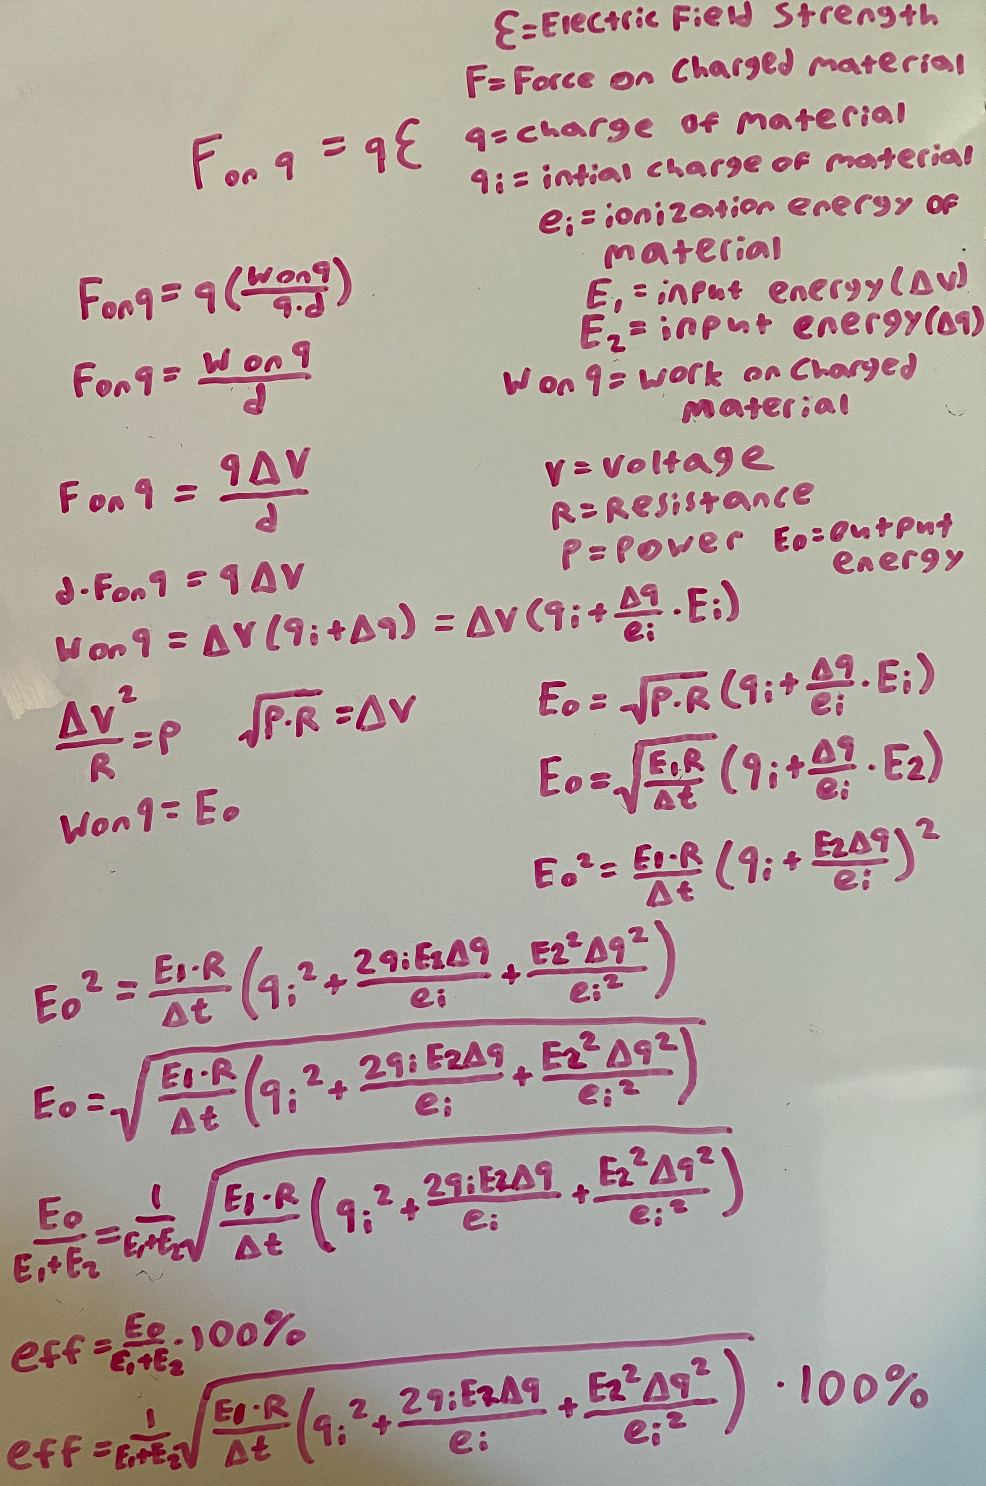 ℰ=Electric Field Strength
F=Force on Charged material
F on q = qℰ
q=charge of material
qi = intial charge of material
ei = ionization energy of
material
F on q = q(W on q / q·d)
E1 = input energy (ΔV)
E2 = input energy (Δq)
F on q = W on q / d
W on q = work on Charged
material
F on q = qΔV / d
V = Voltage
R = Resistance
P = Power Eo = output
energy
d·F on q = qΔV
W on q = ΔV(qi+Δq) = ΔV(qi + Δq/ei · Ei)
ΔV²/R = P √P·R = ΔV
Eo = √P·R (qi + Δq/ei · Ei)
Eo = √(E1R/Δt) (qi + Δq/ei · E2)
W on q = Eo
Eo² = E1·R/Δt (qi + E2Δq/ei)²
Eo² = E1·R/Δt (qi² + 2qiE2Δq/ei + E2²Δq²/ei²)
Eo = √(E1·R/Δt (qi² + 2qiE2Δq/ei + E2²Δq²/ei²))
Eo/E1+E2 = 1/E1+E2 √(E1·R/Δt (qi² + 2qiE2Δq/ei + E2²Δq²/ei²))
eff = Eo/E1+E2 · 100%
eff = 1/E1+E2 √(E1·R/Δt (qi² + 2qiE2Δq/ei + E2²Δq²/ei²)) · 100%